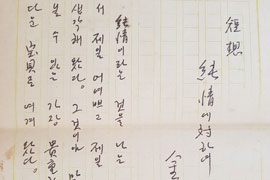 短想
純情에対하야
金
純情이라는 것을 나는
서 제일 어여쁘고 제일
생각해 왔다. 그것이야 말
볼 수 있는 가장 貴重한
다운 宝貝로 여겨 왔다.